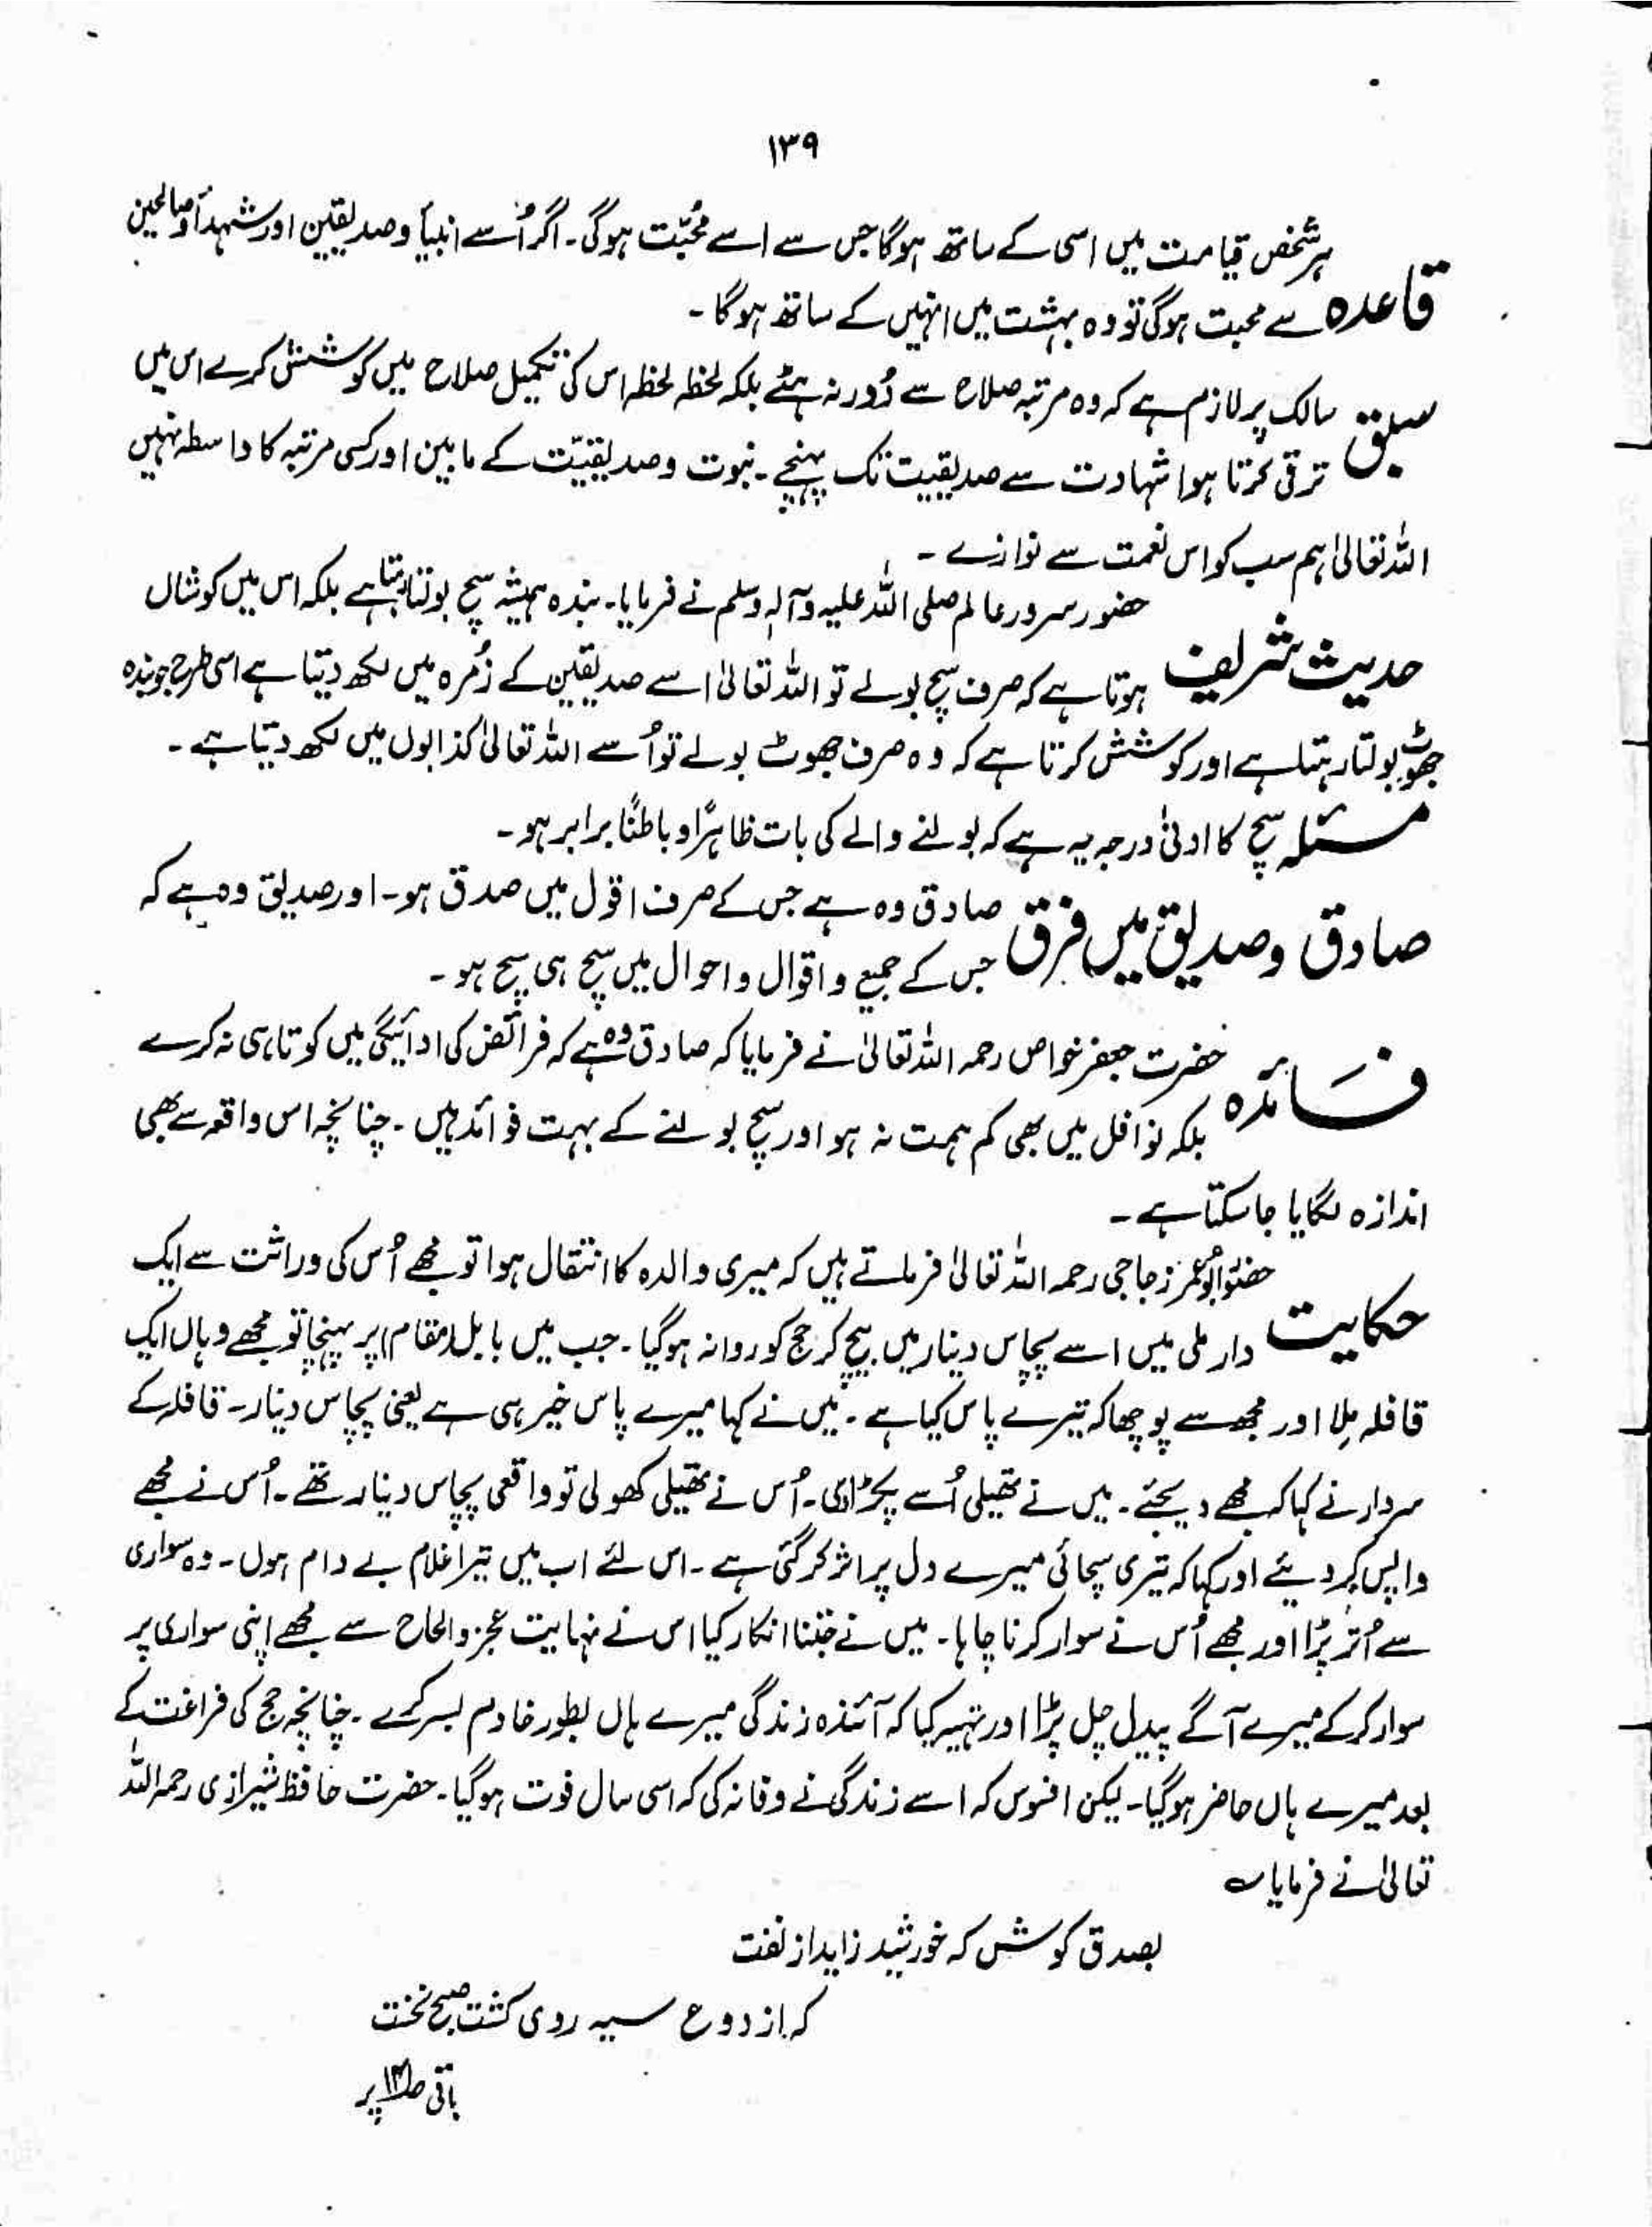 ۱۳۹
ہر شخص قیامت میں اسی کے ساتھ ہوگا جس سے اسے محبّت ہوگی۔ اگر اُسے انبیأ و صدیقین اور شہدأ و صالحین
قاعدہ سے محبت ہوگی تو وہ بہشت میں انہیں کے ساتھ ہوگا ۔
سبق سالک پر لازم ہے کہ وہ مرتبہ صلاح سے دُور نہ ہٹے بلکہ لحظہ لحظہ اس کی تکمیل صلاح میں کوشش کرے اس میں
ترقی کرتا ہوا شہادت سے صدیقیت تک پہنچے ۔ نبوت و صدیقیّت کے مابین اور کسی مرتبہ کا واسطہ نہیں
اللہ تعالیٰ ہم سب کو اس نعمت سے نوازے ۔
حضور سرور عالم صلی اللہ علیہ وآلہٖ وسلم نے فرمایا۔ بندہ ہمیشہ سچ بولتا رہتا ہے بلکہ اس میں کوشاں
حدیث شریف ہوتا ہے کہ صرف سچ بولے تو اللہ تعالیٰ اسے صدیقین کے زُمرہ میں لکھ دیتا ہے اسی طرح جو بندہ
جھوٹ بولتا رہتا ہے اور کوشش کرتا ہے کہ وہ صرف جھوٹ بولے تو اُسے اللہ تعالیٰ کذابوں میں لکھ دیتا ہے ۔
مسئلہ سچ کا ادنیٰ درجہ یہ ہے کہ بولنے والے کی بات ظاہرًا و باطنًا برابر ہو ۔
صادق و صدیق میں فرق صادق وہ ہے جس کے صرف اقول میں صدق ہو ۔ اور صدیق وہ ہے کہ
جس کے جمیع و اقوال و احوال میں سچ ہی سچ ہو ۔
فائدہ حضرت جعفر خواص رحمہ اللہ تعالیٰ نے فرمایا کہ صادق وہ ہے کہ فرائض کی ادائیگی میں کوتاہی نہ کرے
بلکہ نوافل میں بھی کم ہمت نہ ہو اور سچ بولنے کے بہت فوائد ہیں ۔ چنانچہ اس واقعہ سے بھی
اندازہ لگایا جاسکتا ہے ۔
حضرت ابوعمر زجاجی رحمہ اللہ تعالیٰ فرماتے ہیں کہ میری والدہ کا انتقال ہوا تو مجھے اُس کی وراثت سے ایک
حکایت دار ملی میں اسے پچاس دینار میں بیچ کر حج کو روانہ ہوگیا ۔ جب میں بابل (مقام) پر پہنچا تو مجھے وہاں ایک
قافلہ مِلا اور مجھ سے پوچھا کہ تیرے پاس کیا ہے ۔ میں نے کہا میرے پاس خیر ہی ہے یعنی پچاس دینار ۔ قافلہ کے
سردار نے کہا کہ مجھے دیجئے ۔ میں نے تھیلی اُسے پکڑا دی ۔ اُس نے تھیلی کھولی تو واقعی پچاس دینار تھے ۔ اُس نے مجھے
واپس کر دیئے اور کہا کہ تیری سچائی میرے دل پر اثر کر گئی ہے ۔ اس لئے اب میں تیرا غلام بے دام ہوں ۔ وہ سواری
سے اُتر پڑا اور مجھے اُس نے سوار کرنا چاہا ۔ میں نے جتنا انکار کیا اس نے نہایت عجز و الحاح سے مجھے اپنی سواری پر
سوار کر کے میرے آگے پیدل چل پڑا اور تہیہ کیا کہ آئندہ زندگی میرے ہاں بطور خادم بسر کرے ۔ چنانچہ حج کی فراغت کے
بعد میرے ہاں حاضر ہوگیا ۔ لیکن افسوس کہ اسے زندگی نے وفا نہ کی کہ اسی سال فوت ہوگیا ۔ حضرت حافظ شیرازی رحمہ اللہ
تعالیٰ نے فرمایا ؎
بصدق کوش کہ خورشید زاید از نفت
کہ از دوع سیہ روی کشت صبح نخست
باقی پر